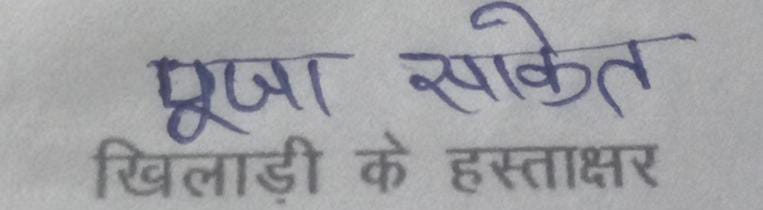 पूजा साकेत
खिलाड़ी के हस्ताक्षर